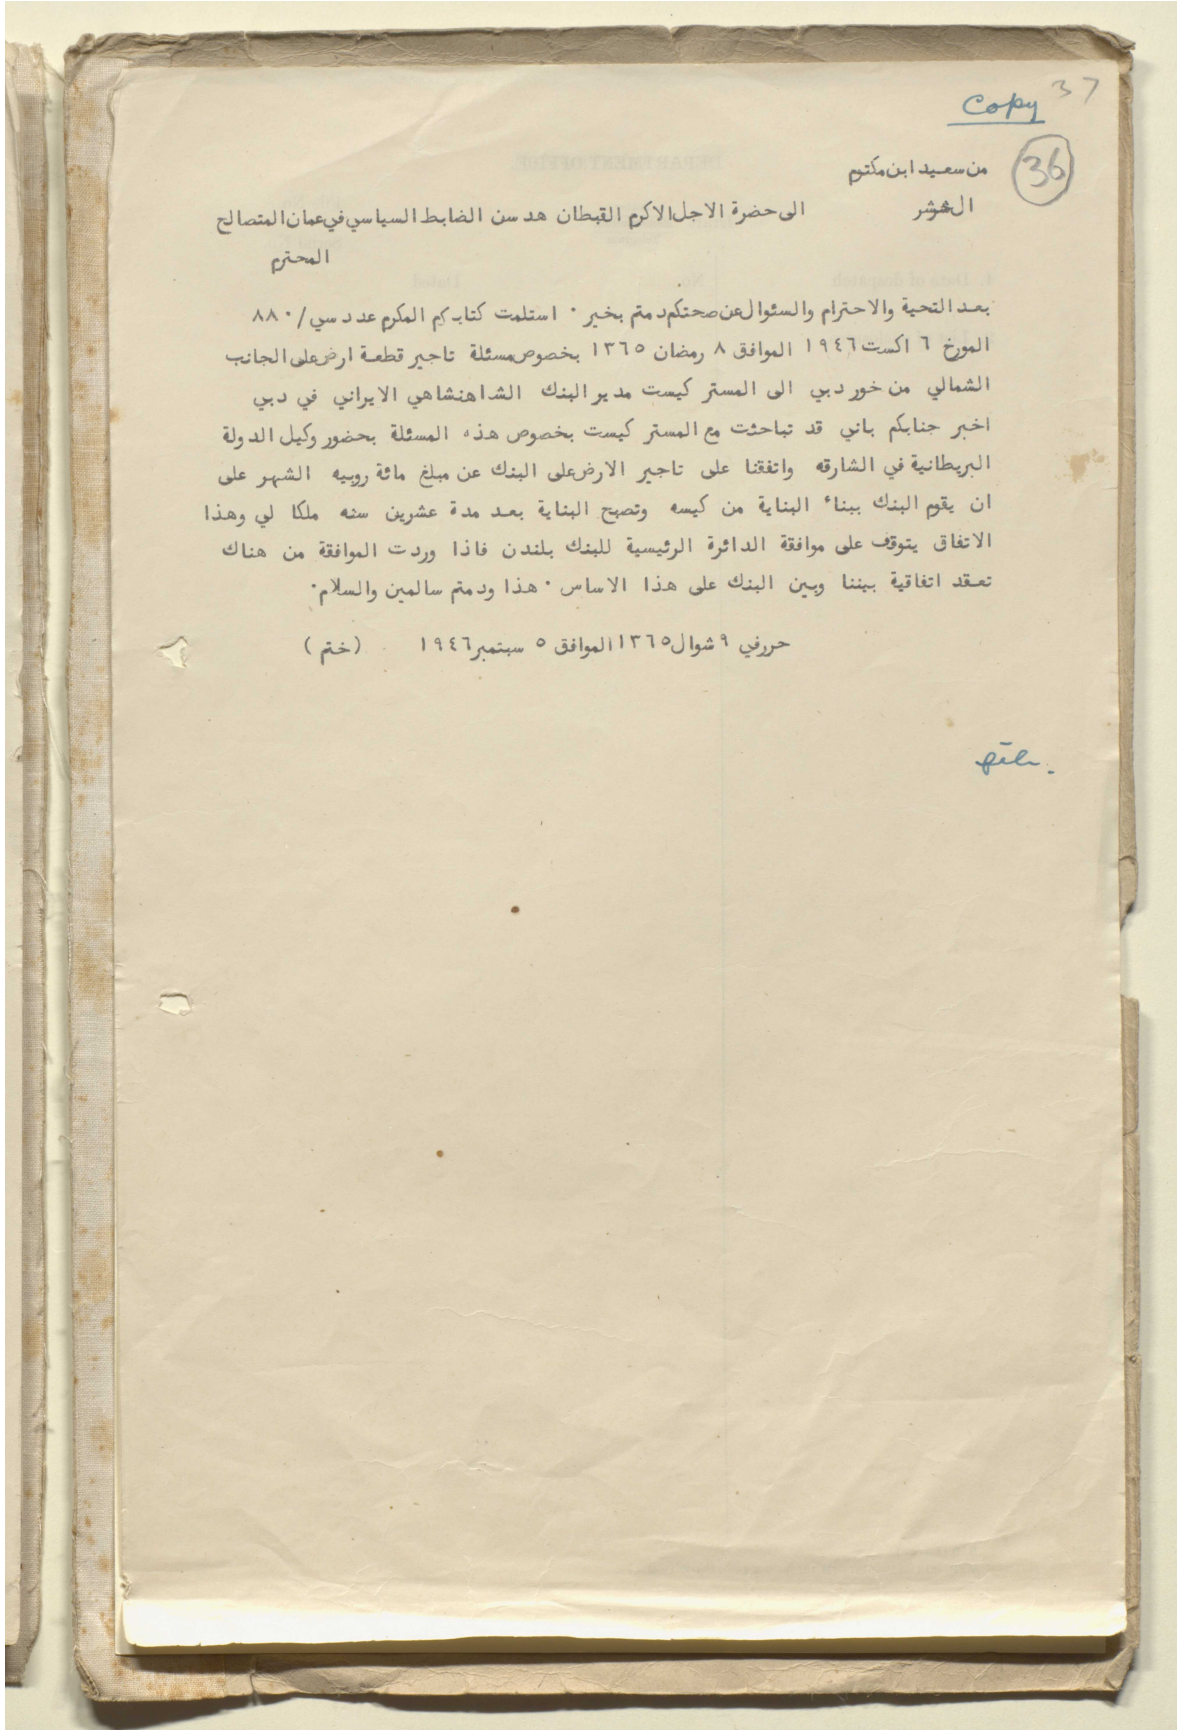 Copy 37
36
من سعيد ابن مكتوم
الى حضرة الاجل الاكرم القبطان هدسن الضابط السياسي في عمان المتصالح
المحترم
بعد التحية والاحترام والسئوال عن صحتكم دمتم بخير ٠ استلمت كتابكم المكرم عدد سي/٨٨٠
المورخ ٦ اكست ١٩٤٦ الموافق ٨ رمضان ١٣٦٥ بخصوص مسئلة تاجير قطعة ارض على الجانب
الشمالي من خور دبي الى المستر كيست مدير البنك الشاهنشاهي الايراني في دبي
اخبر جنابكم باني قد تباحثت مع المستر كيست بخصوص هذه المسئلة بحضور وكيل الدولة
البريطانية في الشارقه واتفقنا على تاجير الارض على البنك عن مبلغ مائة روبيه الشهر على
ان يقوم البنك ببناء البناية من كيسه وتصبح البناية بعد مدة عشرين سنه ملكا لي وهذا
الاتفاق يتوقف على موافقة الدائرة الرئيسية للبنك بلندن فاذا وردت الموافقة من هناك
تعقد اتفاقية بيننا وبين البنك على هذا الاساس ٠ هذا ودمتم سالمين والسلام٠
حرر في ٩ شوال ١٣٦٥ الموافق ٥ سبتمبر ١٩٤٦ (ختم)